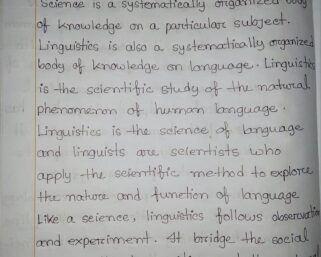 Science is a systematically organized body
of knowledge on a particular subject.
Linguistics is also a systematically organized
body of knowledge on language. Linguistics
is the scientific study of the natural
phenomenon of human language.
Linguistics is the science of language
and linguists are scientists who
apply the scientific method to explore
the nature and function of language
Like a science, linguistics follows observation
and experiment. It bridge the social